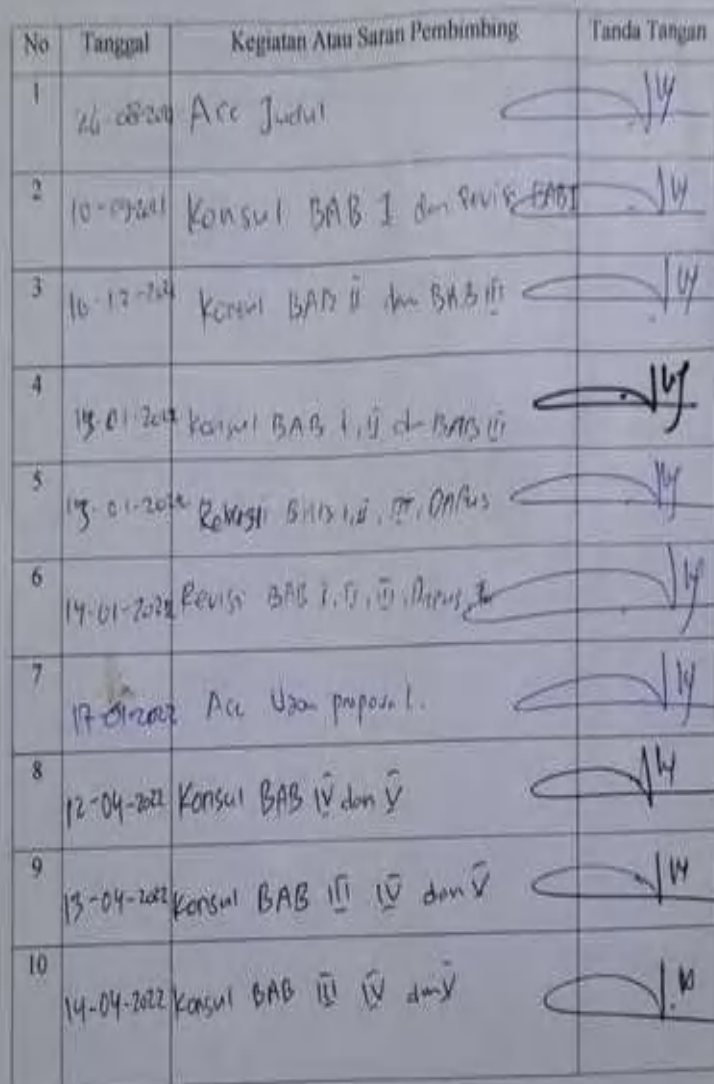 No Tanggal Kegiatan Atau Saran Pembimbing Tanda Tangan
1 Acc Judul
2 10-09-2021 Konsul BAB I dan Revisi BAB I
3 Konsul BAB II dan BAB III
4 Konsul BAB I, II dan BAB III
5 Revisi BAB I, II, III, Dapus
6 14-01-2022 Revisi BAB I, II, III, Dapus,
7 17-01-2022 Acc Ujian proposal.
8 12-04-2022 Konsul BAB IV dan V
9 13-04-2022 Konsul BAB III IV dan V
10 14-04-2022 Konsul BAB III IV dan V